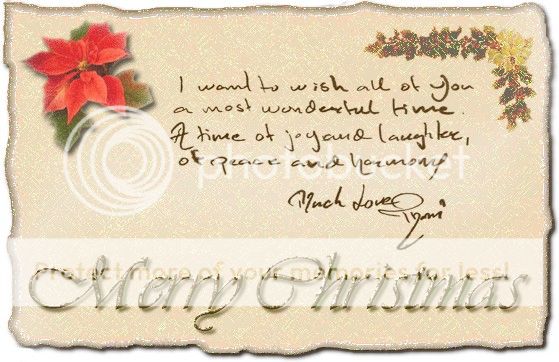 I want to wish all of you
a most wonderful time.
A time of joy and laughter,
of peace and harmony
Much Love
photobucket
Protect more of your memories for less!
Merry Christmas